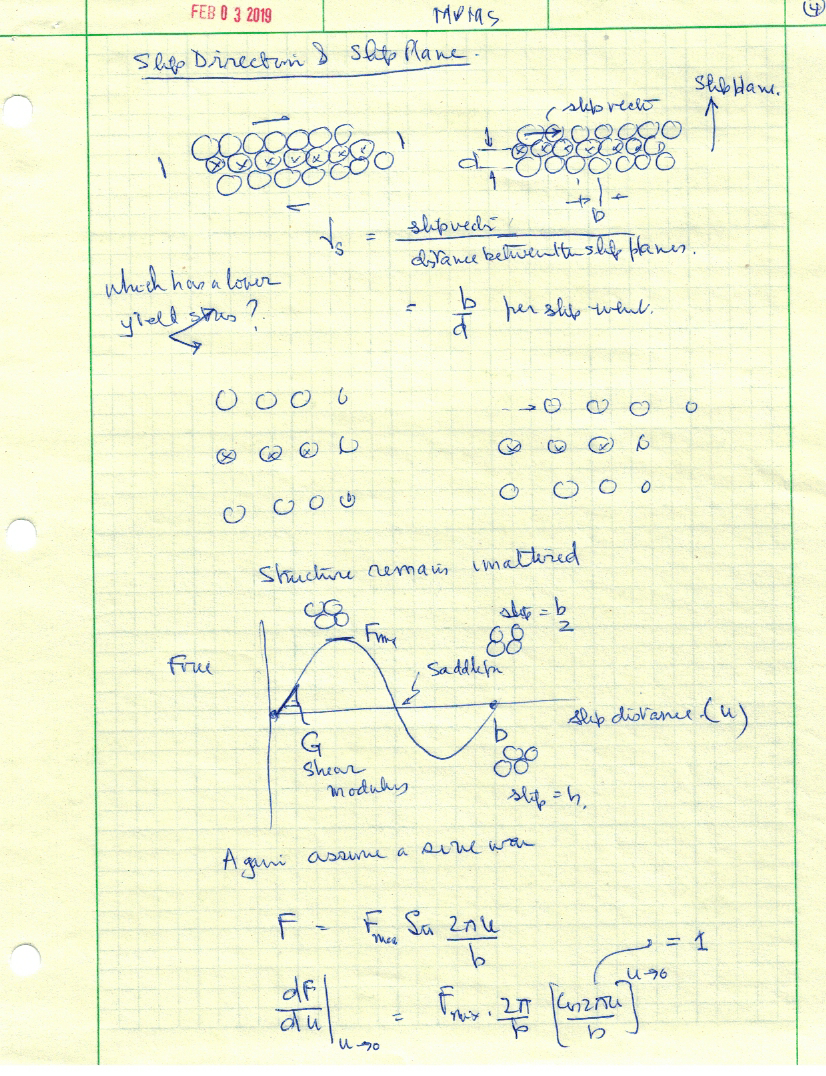 FEB 0 3 2019
MVMS
(4)
Slip Direction & Slip Plane.
slip vector
Slip plane.
d
b
γs = slip vector / distance between the slip planes.
which has a lower
yield stress?
= b/d per slip event.
Structure remains unaltered
slip = b/2
Fmax
Force
Saddle pt
slip distance (u)
b
G
Shear
modulus
slip = b.
Again assume a sine wave
F = Fmax Sin 2πu/b
= 1
u→0
dF/du |u→0 = Fmax . 2π/b [Cos 2πu/b]